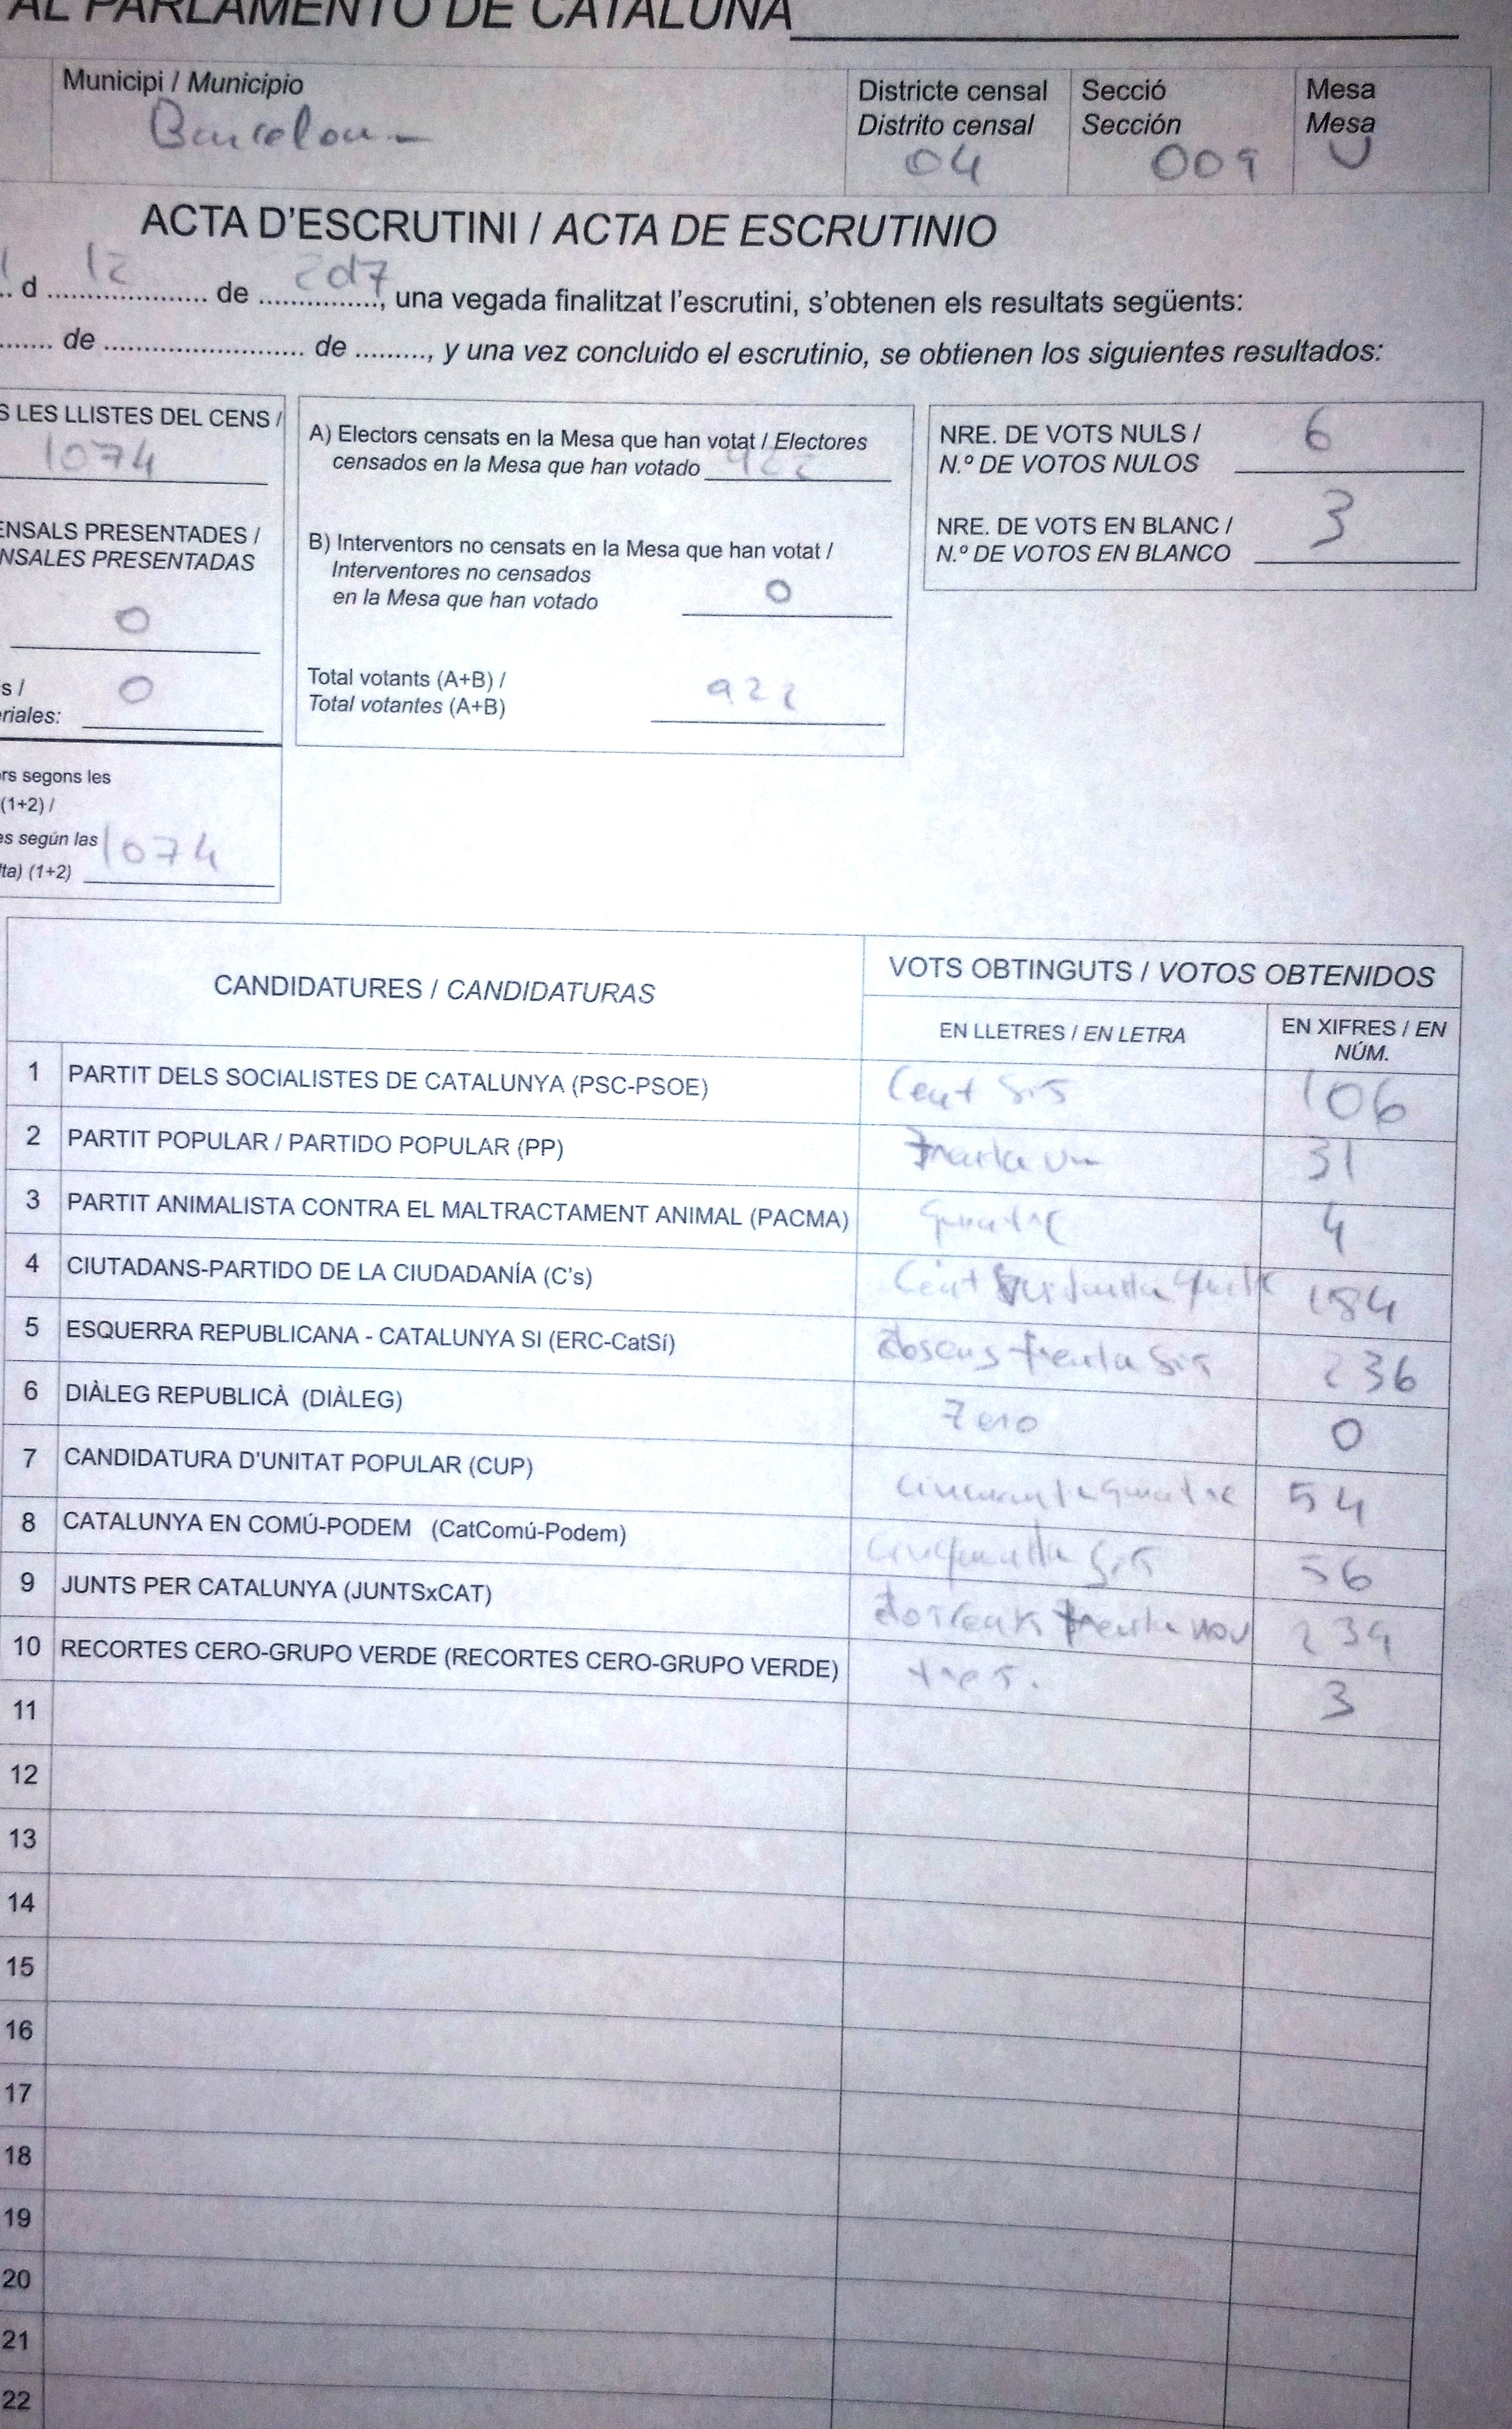 AL PARLAMENTO DE CATALUÑA
Municipi / Municipio
Barcelona
Districte censal
Distrito censal
04
Secció
Sección
009
Mesa
Mesa
U
ACTA D'ESCRUTINI / ACTA DE ESCRUTINIO
.. d 12 de 2017, una vegada finalitzat l'escrutini, s'obtenen els resultats següents:
....... de ........................ de ........., y una vez concluido el escrutinio, se obtienen los siguientes resultados:
S LES LLISTES DEL CENS /
1074
ENSALS PRESENTADES /
NSALES PRESENTADAS
0
s /
riales: 0
rs segons les
(1+2) /
es según las
lta) (1+2) 1074
A) Electors censats en la Mesa que han votat / Electores
censados en la Mesa que han votado 922
B) Interventors no censats en la Mesa que han votat /
Interventores no censados
en la Mesa que han votado 0
Total votants (A+B) /
Total votantes (A+B) 922
NRE. DE VOTS NULS /
N.º DE VOTOS NULOS 6
NRE. DE VOTS EN BLANC /
N.º DE VOTOS EN BLANCO 3
CANDIDATURES / CANDIDATURAS
VOTS OBTINGUTS / VOTOS OBTENIDOS
EN LLETRES / EN LETRA
EN XIFRES / EN
NÚM.
1 PARTIT DELS SOCIALISTES DE CATALUNYA (PSC-PSOE) Cent sis 106
2 PARTIT POPULAR / PARTIDO POPULAR (PP) Trenta un 31
3 PARTIT ANIMALISTA CONTRA EL MALTRACTAMENT ANIMAL (PACMA) quatre 4
4 CIUTADANS-PARTIDO DE LA CIUDADANÍA (C's) Cent 184
5 ESQUERRA REPUBLICANA - CATALUNYA SI (ERC-CatSí) trenta sis 236
6 DIÀLEG REPUBLICÀ (DIÀLEG) Zero 0
7 CANDIDATURA D'UNITAT POPULAR (CUP) quatre 54
8 CATALUNYA EN COMÚ-PODEM (CatComú-Podem) cinquanta sis 56
9 JUNTS PER CATALUNYA (JUNTSxCAT) trenta nou 239
10 RECORTES CERO-GRUPO VERDE (RECORTES CERO-GRUPO VERDE) tres. 3
11
12
13
14
15
16
17
18
19
20
21
22